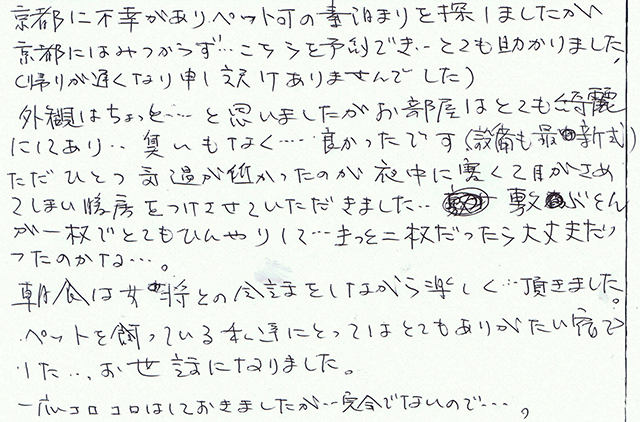 京都に不幸があり、ペット可の素泊まりを探しましたが
京都にはみつからず…こちらを予約でき‥とても助かりました
(帰りが遅くなり申し訳けありませんでした)
外観はちょっと……と思いましたがお部屋はとても綺麗
にしてあり‥臭いもなく……良かったです(設備も最新式)
ただひとつ気温が低かったのか夜中に寒くて目がさめ
てしまい暖房をつけさせていただきました‥敷ぶとん
が一枚でとてもひんやりして…きっと二枚だったら大丈夫だ
ったのかな…。
朝食は女将との会話をしながら楽しく…頂きました。
ペットを飼っている私達にとってはとてもありがたい宿で
した…、お世話になりました。
一応コロコロはしておきましたが…完全でないので…。